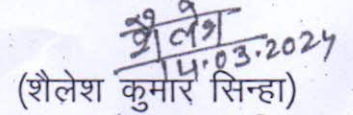 शैलेश
14.03.2024
(शैलेश कुमार सिन्हा)